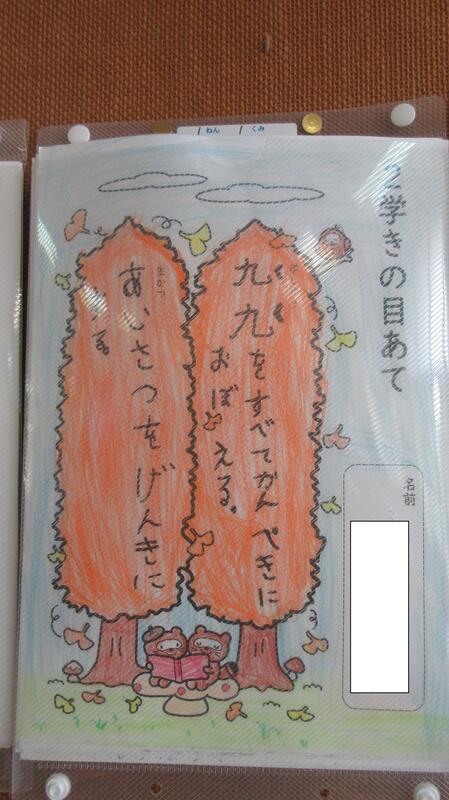 1 ねん 1 くみ
2学きの目あて
名前
九九をすべてかんぺきに
おぼえる。
生かつ
あいさつをげんきに